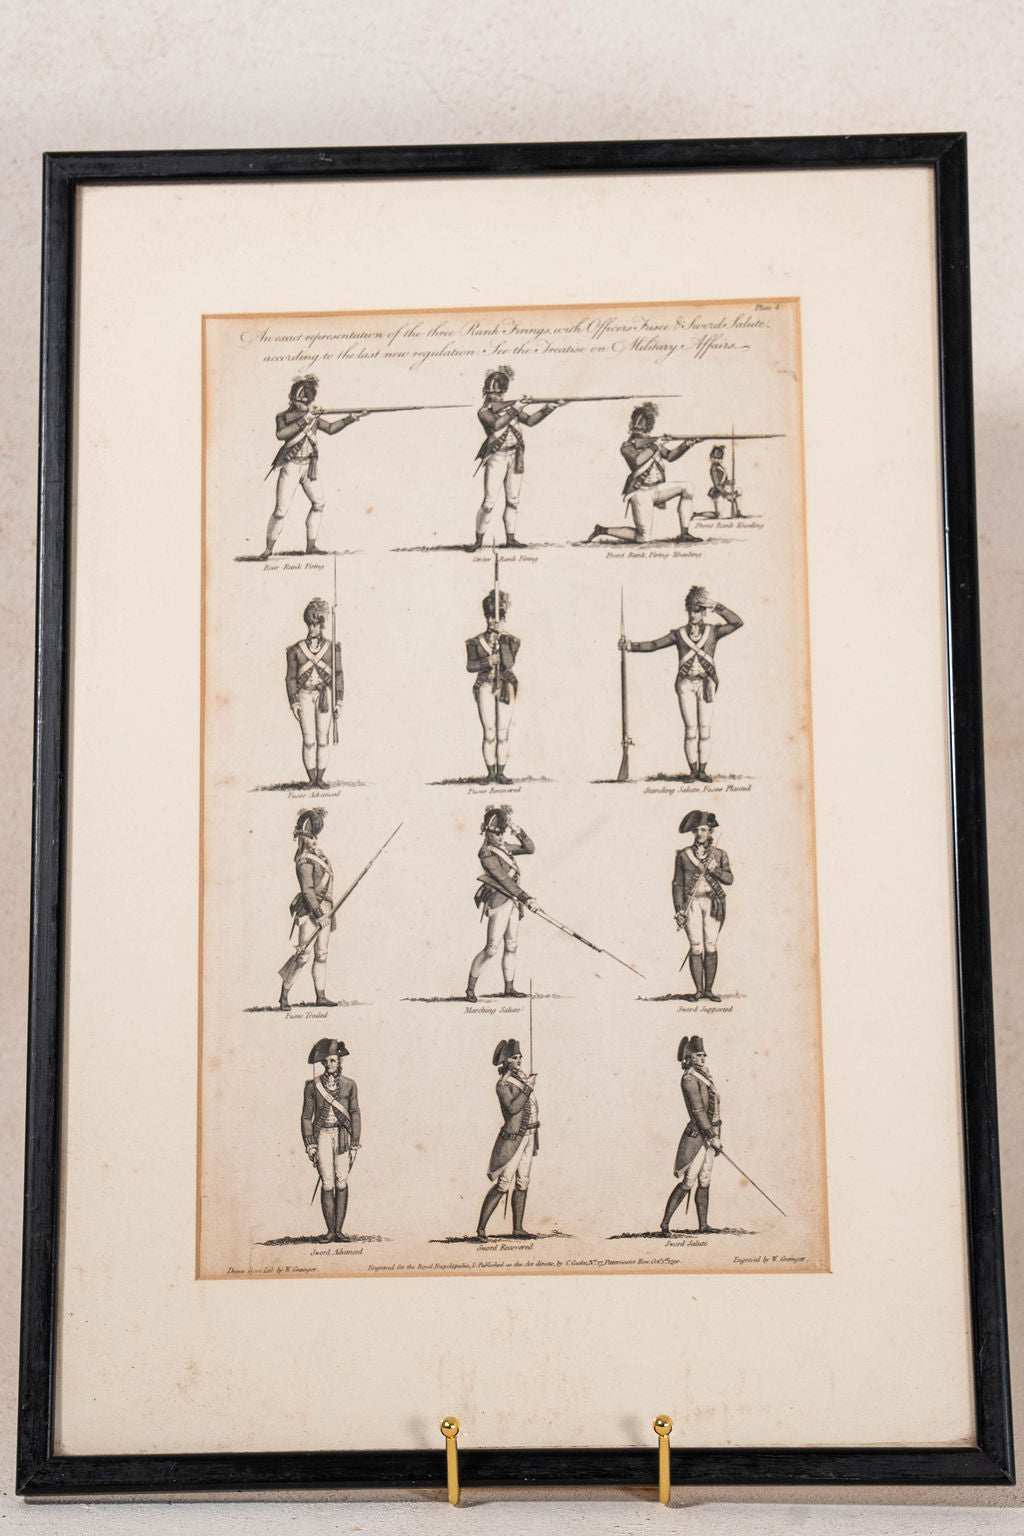 Plate 4.
An exact representation of the three Rank Firings, with Officers Fusee & Sword Salute,
according to the last new regulation. See the Treatise on Military Affairs.
Front Rank Kneeling
Rear Rank Firing
Center Rank Firing
Front Rank, Firing Kneeling
Fusee Advanced
Fusee Recovered
Standing Salute, Fusee Planted
Fusee Trailed
Marching Salute
Sword Supported
Sword Advanced
Sword Recovered
Sword Salute
Drawn from Life by W. Grainger.
Engraved for the Royal Encyclopædia, & Published as the Act directs, by C. Cooke, No. 17, Paternoster Row, Octr. 1790.
Engraved by W. Grainger.